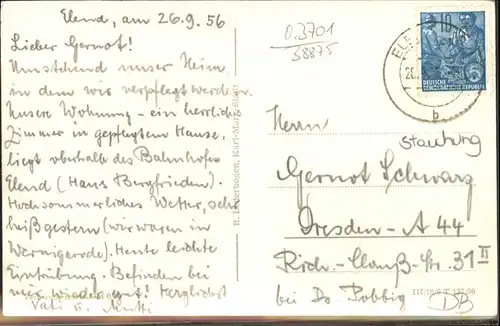 Elend, am 26.9.56
Lieber Gernot!
Umstehend unser Heim,
in dem wir verpflegt werden.
Unsere Wohnung - ein herrliches
Zimmer in gepflegtem Hause,
liegt oberhalb des Bahnhofes
Elend (Haus Bergfrieden).
Hochsommerliches Wetter, sehr
heiß gestern (wir waren in
Wernigerode). Heute leichte
Eintrübung. Befinden bei
mir wieder gut! Herzlichst
Vati u. Mutti
R. Lederbogen, Karl-Marx-Stadt
0.3701
58875
10
DEUTSCHE
DEMOKRATISCHE REPUBLIK
b
Stauburg
Herrn
Gernot Schwarz
Dresden-A 44
Rich.-Clauß-Str. 31 II
bei Dr Pobbig
DB